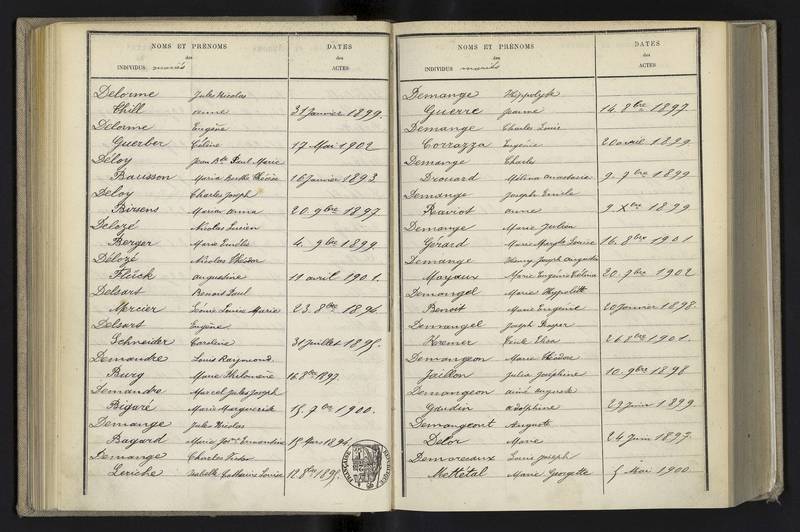 NOMS ET PRÉNOMS
des
INDIVIDUS mariés
DATES
des
ACTES
Delorme Jules Nicolas
Chill anne 31 Janvier 1899.
Delorme Eugène
Guerber Céline 17 Mai 1902
Déloy Jean Bte Paul Marie
Bausson Maria Berthe Thérèse 16 Janvier 1893
Deloy Charles Joseph
Birsens Maria anna 20. 9bre 1897.
Delozé Nicolas Lucien
Berger Marie Emélie 4. 9bre 1899
Délozé Nicolas Théodor
Fleick augustine 11 avril 1901.
Delsart Benoit Paul
Mercier Léonie Louise Marie 23. 8bre 1896.
Delsart Eugène
Schneider Caroline 31 Juillet 1895.
Demandre Louis Raymond.
Burg Marie Philomène 16. 8bre 1897.
Demandre Marcel Jules Joseph
Bigaré Marie Marguerite 15. 7bre 1900.
Demange Jules Nicolas
Bagard Marie Ernandine 15 Mars 1894
Demange Charles Victor
Leriche Isabelle Catherine Louise 12 8bre 1895.
NOMS ET PRÉNOMS
des
INDIVIDUS mariés
DATES
des
ACTES
Demange Hyppolyte
Guerre Jeanne 14 8bre 1897.
Demange Charles Louis
Corrazza Eugénie 20 avril 1899.
Demange Charles
Drouard Mélina anastasie 9. 9bre 1899
Demange Joseph Emile
Raviot anne 9. Xbre 1899
Demange Marie Julien
Gérard Marie Louise 16. 8bre 1901
Demange Henry Joseph Augustin
Mayaux Marie Eugénie 20. 9bre 1902
Demangel Marie Hyppolitte
Benoit Marie Eugénie 20 Janvier 1898.
Demangel Joseph
Kremer Elisa 26 8bre 1901.
Demangeon Marie Théodore
Jaillon Julia Joséphine 10. 9bre 1898
Demangeon aimé auguste
Gaudin adolphine 29 Juin 1899.
Demangeont Auguste
Delor Marie 24 Juin 1897.
Demareaux Louis Joseph
Mettétal Marie Georgette 5 Mai 1900.